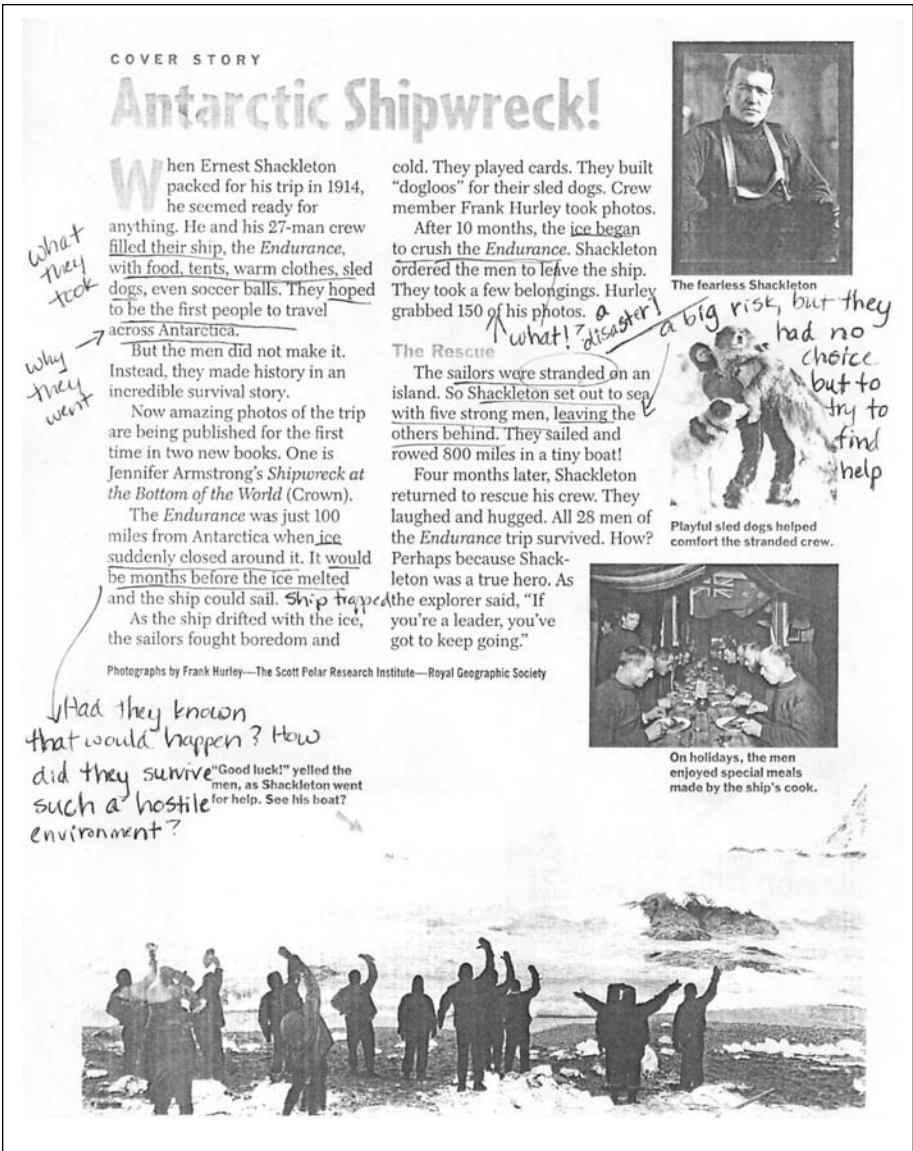 COVER STORY
Antarctic Shipwreck!
When Ernest Shackleton
packed for his trip in 1914,
he seemed ready for
anything. He and his 27-man crew
filled their ship, the Endurance,
with food, tents, warm clothes, sled
dogs, even soccer balls. They hoped
to be the first people to travel
across Antarctica.
But the men did not make it.
Instead, they made history in an
incredible survival story.
Now amazing photos of the trip
are being published for the first
time in two new books. One is
Jennifer Armstrong's Shipwreck at
the Bottom of the World (Crown).
The Endurance was just 100
miles from Antarctica when ice
suddenly closed around it. It would
be months before the ice melted
and the ship could sail.
As the ship drifted with the ice,
the sailors fought boredom and
what
they
took
why
they
went
Ship trapped
cold. They played cards. They built
"dogloos" for their sled dogs. Crew
member Frank Hurley took photos.
After 10 months, the ice began
to crush the Endurance. Shackleton
ordered the men to leave the ship.
They took a few belongings. Hurley
grabbed 150 of his photos.
what!? a
disaster!
The Rescue
The sailors were stranded on an
island. So Shackleton set out to sea
with five strong men, leaving the
others behind. They sailed and
rowed 800 miles in a tiny boat!
Four months later, Shackleton
returned to rescue his crew. They
laughed and hugged. All 28 men of
the Endurance trip survived. How?
Perhaps because Shack-
leton was a true hero. As
the explorer said, "If
you're a leader, you've
got to keep going."
The fearless Shackleton
a big risk, but they
had no
choice
but to
try to
find
help
Playful sled dogs helped
comfort the stranded crew.
On holidays, the men
enjoyed special meals
made by the ship's cook.
Photographs by Frank Hurley—The Scott Polar Research Institute—Royal Geographic Society
Had they known
that would happen? How
did they survive
such a hostile
environment?
"Good luck!" yelled the
men, as Shackleton went
for help. See his boat?